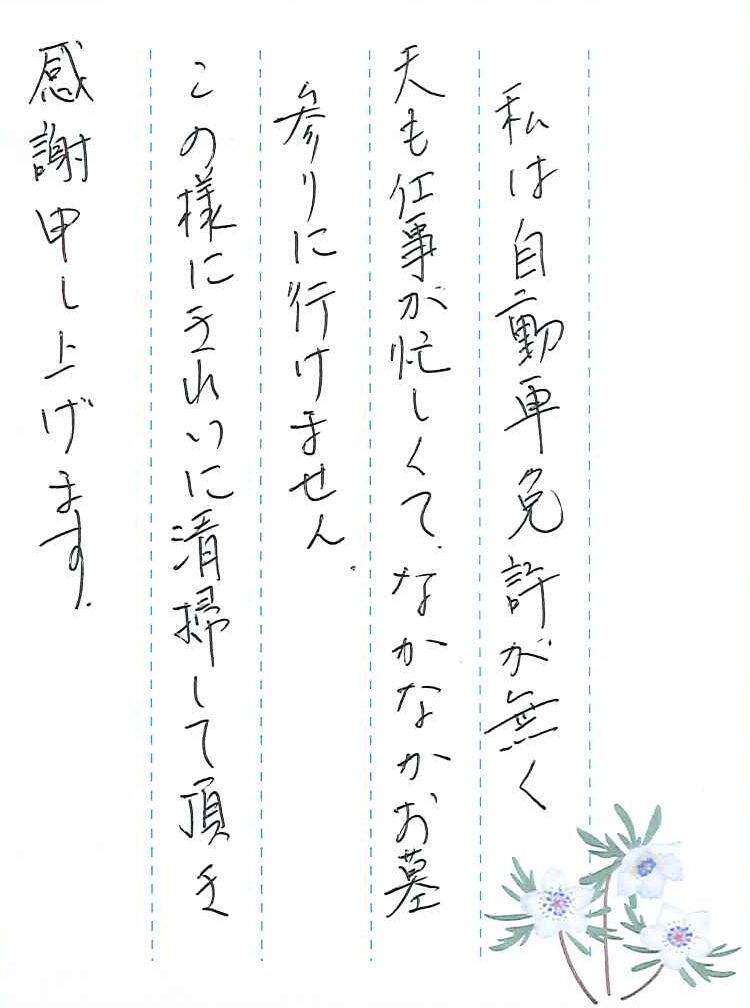 私は自動車免許が無く
夫も仕事が忙しくて、なかなかお墓
参りに行けません。
この様にきれいに清掃して頂き
感謝申し上げます。